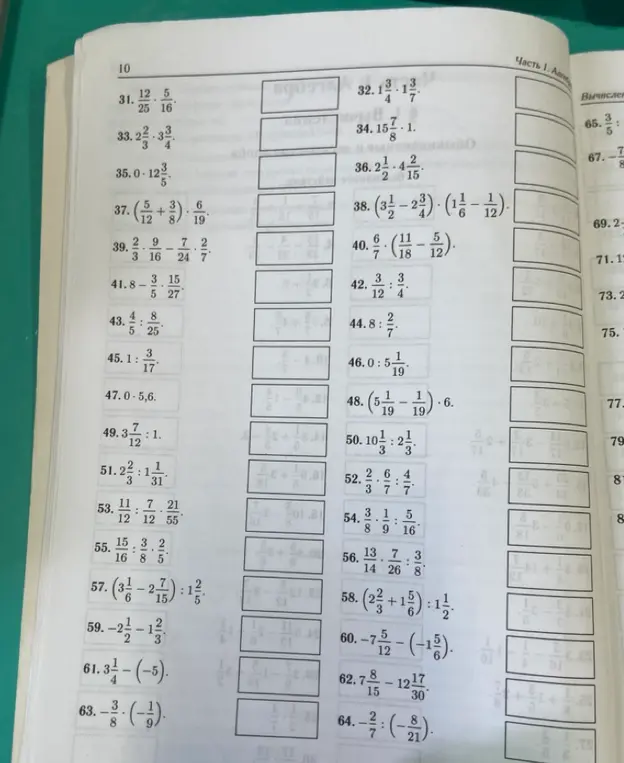 10
Часть 1.
31. 12/25 · 5/16.
32. 1 3/4 · 1 3/7.
33. 2 2/3 · 3 3/4.
34. 15 7/8 · 1.
35. 0 · 12 3/5.
36. 2 1/2 · 4 2/15.
37. (5/12 + 3/8) · 6/19.
38. (3 1/2 − 2 3/4) · (1 1/6 − 1/12).
39. 2/3 · 9/16 − 7/24 · 2/7.
40. 6/7 · (11/18 − 5/12).
41. 8 − 3/5 · 15/27.
42. 3/12 : 3/4.
43. 4/5 : 8/25.
44. 8 : 2/7.
45. 1 : 3/17.
46. 0 : 5 1/19.
47. 0 · 5,6.
48. (5 1/19 − 1/19) · 6.
49. 3 7/12 : 1.
50. 10 1/3 : 2 1/3.
51. 2 2/3 : 1 1/31.
52. 2/3 · 6/7 : 4/7.
53. 11/12 : 7/12 · 21/55.
54. 3/8 · 1/9 : 5/16.
55. 15/16 : 3/8 · 2/5.
56. 13/14 · 7/26 : 3/8.
57. (3 1/6 − 2 7/15) : 1 2/5.
58. (2 2/3 + 1 5/6) : 1 1/2.
59. −2 1/2 − 1 2/3.
60. −7 5/12 − (−1 5/6).
61. 3 1/4 − (−5).
62. 7 8/15 − 12 17/30.
63. −3/8 · (−1/9).
64. −2/7 : (−8/21).
65. 3/5 :
67.
69. 2
71. 1
73. 2
75.
77.
79
8
8